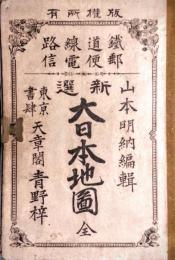 版權所有
鐵道線路
郵便電信
山本明納編輯
新選
大日本地圖 全
東京
書肆
天章閣 青野梓